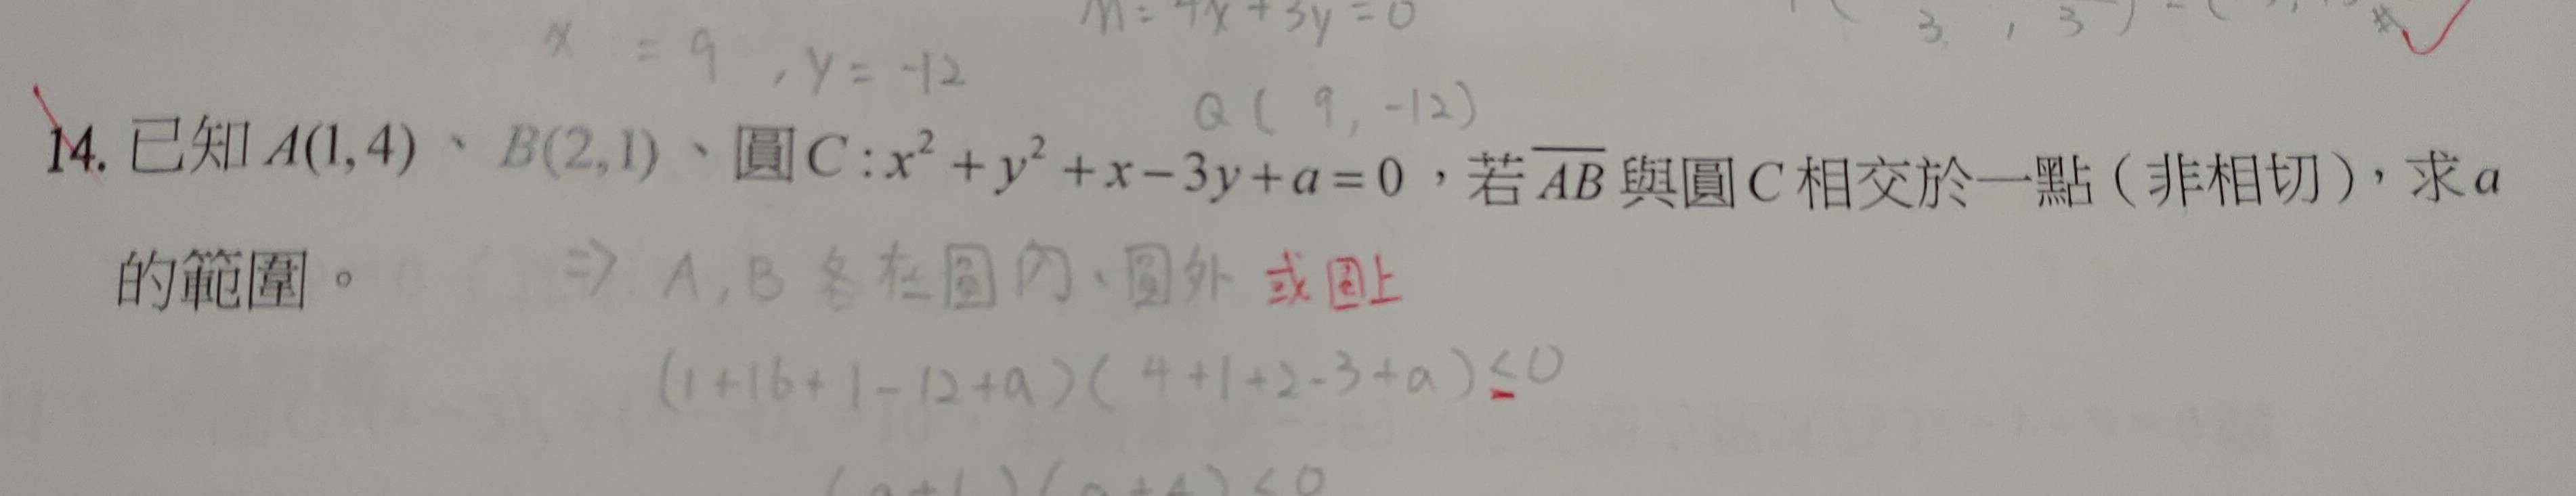 m: 4x + 3y = 0
x = 9 , y = -12
3 , 3
Q ( 9, -12)
14. 已知 A(1,4)、B(2,1)、圓C:x² + y² + x − 3y + a = 0,若 \overline{AB} 與圓C相交於一點(非相切),求a
的範圍。
⇒ A, B 各在圓內、圓外 或圓上
(1+16+1-12+a)(4+1+2-3+a)≤0